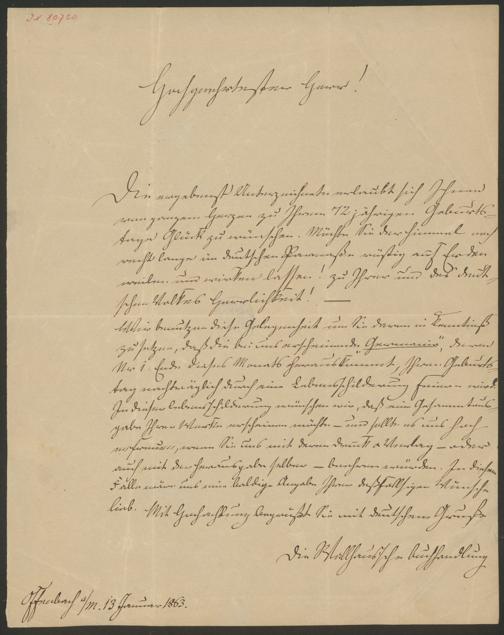 Hochgeehrtester Herr!
Die ergebenst Unterzeichnete erlaubt sich Ihnen
von ganzem Herzen zu Ihrem 72 jährigen Geburts
tage Glück zu wünschen. Möchte Sie der Himmel noch
recht lange im deutschen rüstig auf Erden
weilen und wirken lassen! zu Ihrer und des deut-
schen Volkes Herrlichkeit! —
Wir benutzen diese Gelegenheit um Sie davon in Kenntniß
zu setzen, daß die bei uns erscheinende "Germania", deren
Nr 1. Ende dieses Monats herauskömmt, Ihren Geburts
tag nachträglich durch eine Lebensschilderung feiern wird.
In dieser Lebensschilderung wünschen wir, daß eine Gesammtaus
gabe Ihrer Werke erscheinen möchte — und sollte es uns hoch
erfreuen, wenn Sie uns mit deren Verlag — oder
auch mit der Herausgabe selber — beehren würden. In diesem
Falle wäre uns eine baldige Angabe Ihrer deßfallsigen Wünsche
lieb. Mit Hochachtung begrüßt Sie mit deutschem Gruße
Die Buchhandlung
Offenbach a/m. 13 Januar 1863.